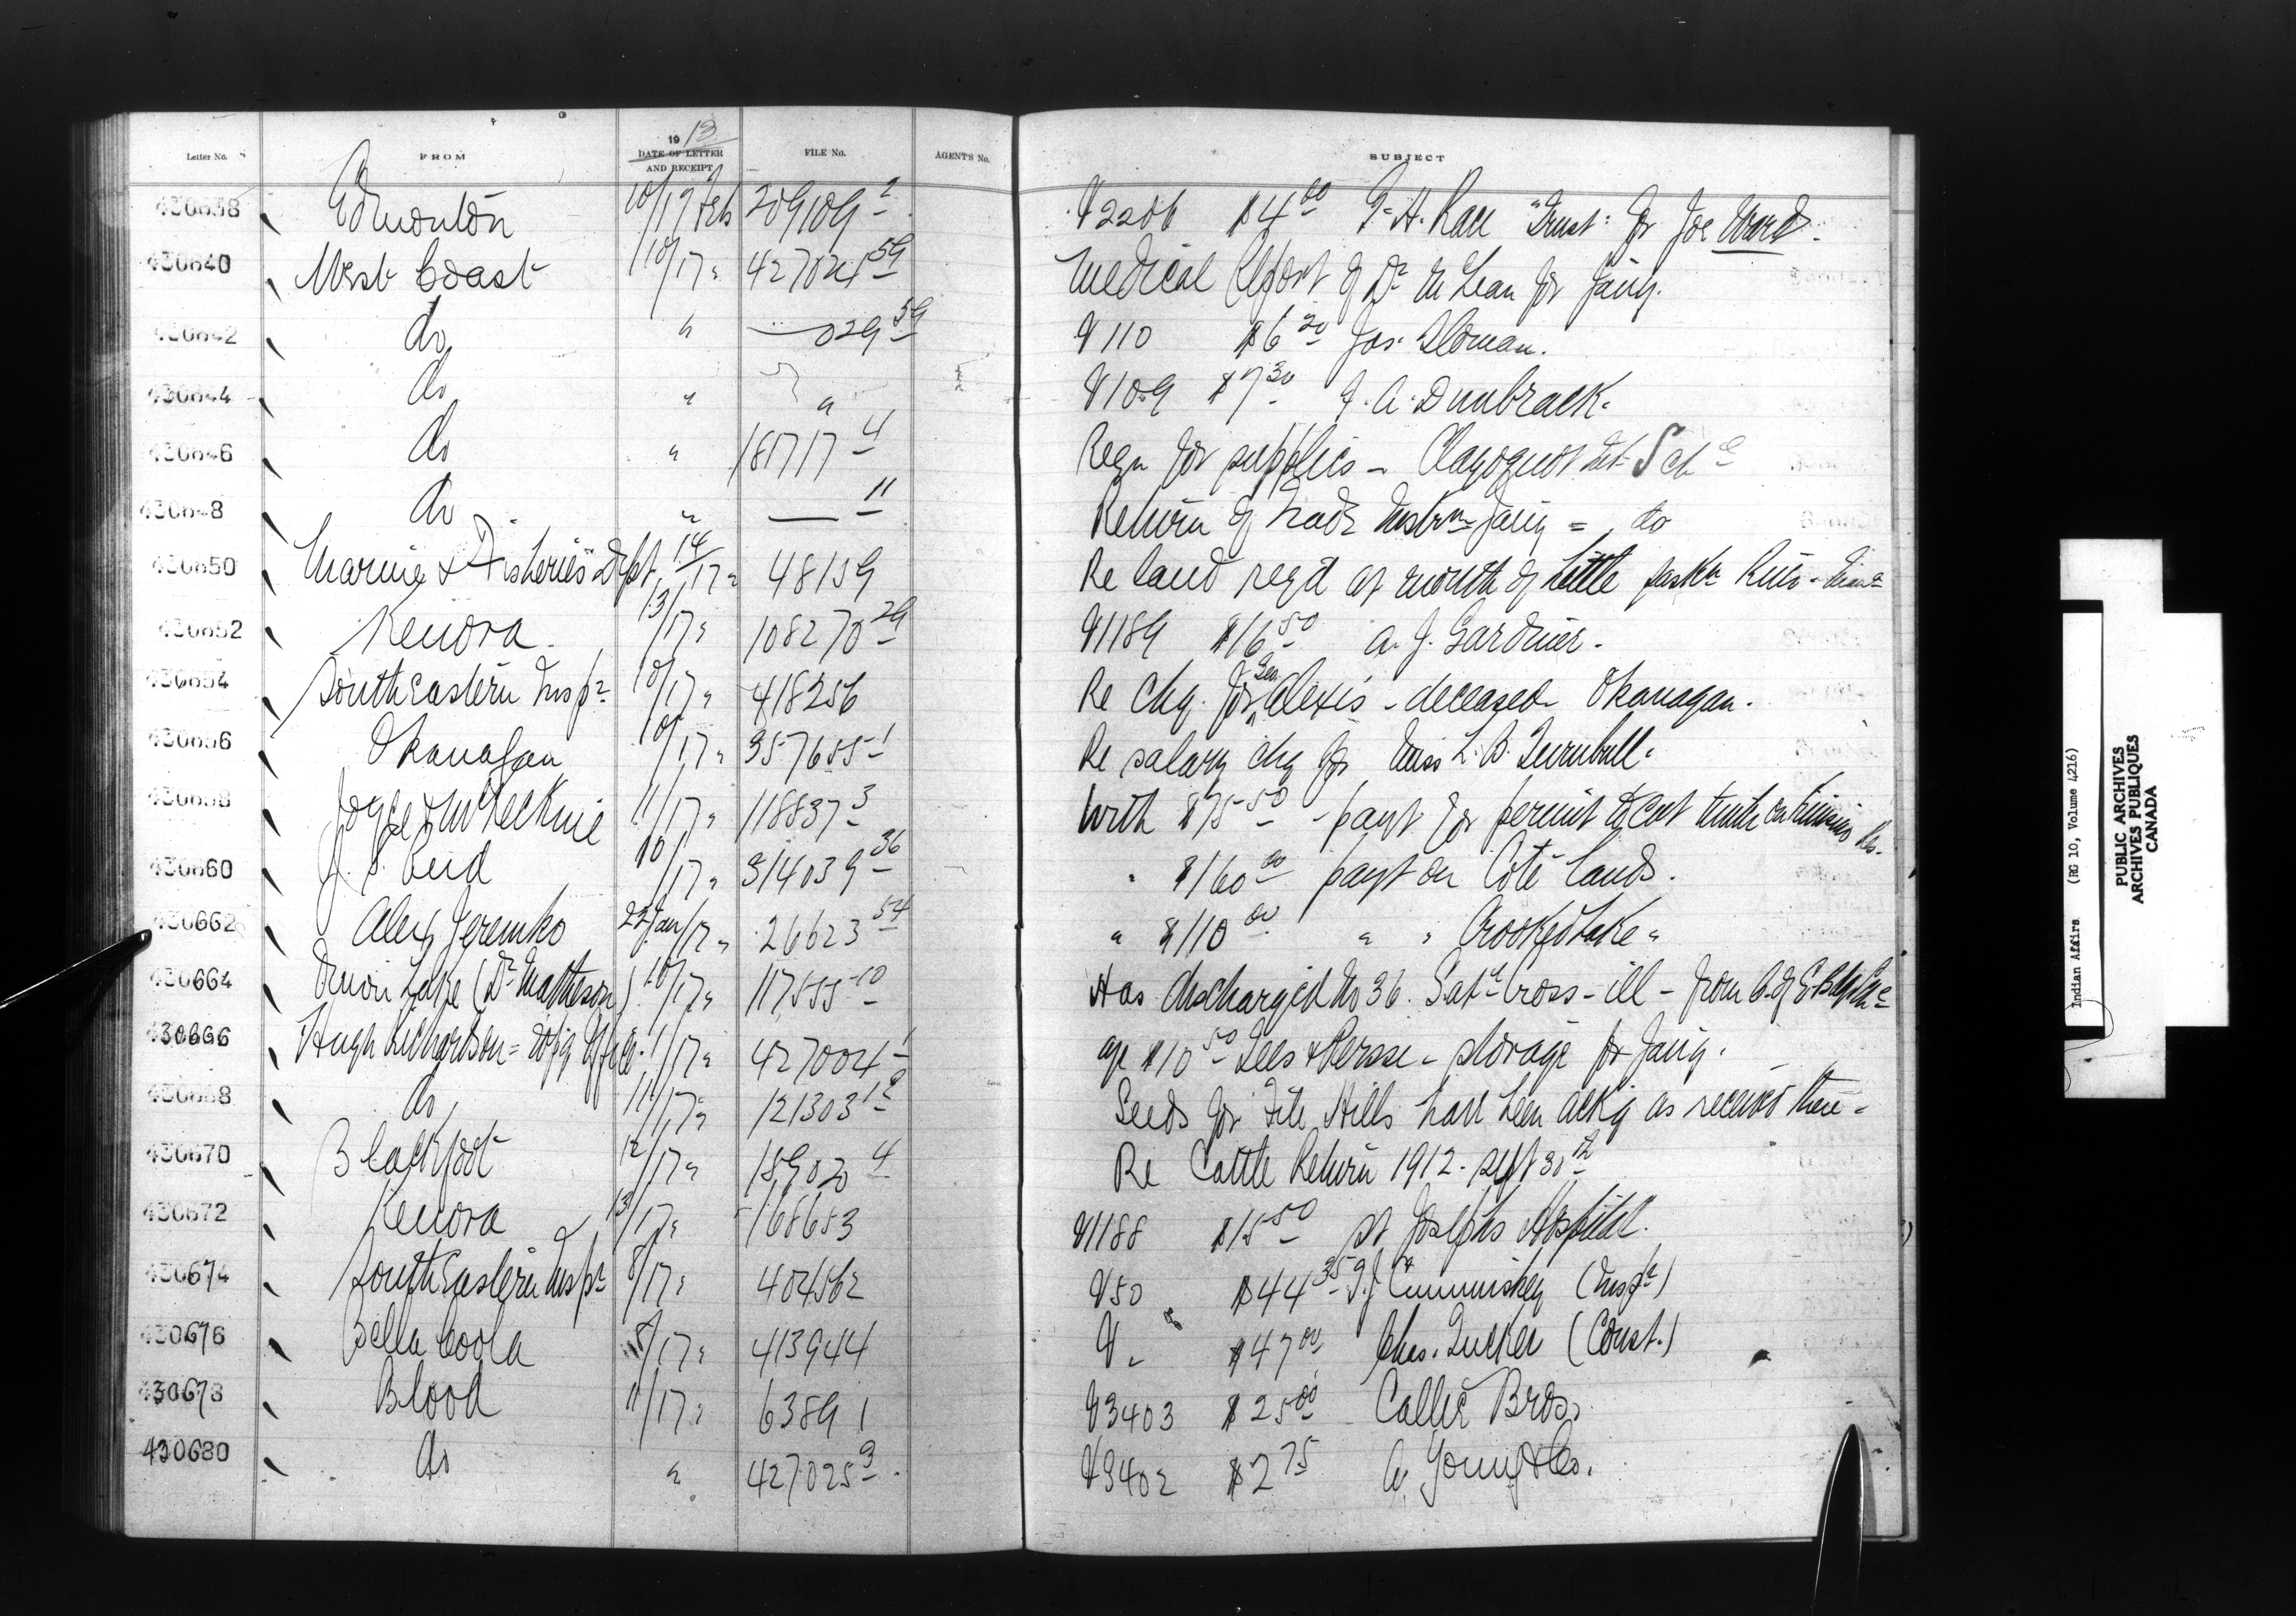 Letter No. FROM 1913 DATE OF LETTER AND RECEIPT FILE No. AGENT'S No. SUBJECT
430638 Edmonton 10/17 Feb 209109-2 V2206 $4.00 Trust: for Joe Ward.
430640 West Coast 10/17 " 427024-59 Medical Report of Dr McLean for Jany.
430642 do " 029-59 V110 $6.20 Jos.
430644 do " " V109 $7.30 J. A. Dunbrack.
430646 do " 181717-4 Reqn for supplies - Clayoquot Sch
430648 do " — 11 Return of Trade Instrn Jany = do
430650 Marine & Fisheries Dept. 14/17 " 48159 Re land reqd at mouth of Little
430652 Kenora. 13/17 " 108270-29 V1189 $16.50 A. J. Gardner.
430654 South Eastern Inspr 10/17 " 418256 Re chq. for Geo Alexis - deceased - Okanagan.
430656 Okanagan 10/17 " 357655-1 Re salary chq for Miss L. B. Turnbull.
430658 11/17 " 118837-3 With $75.50 - payt for permit to cut timber on
430660 J. S. Reid 10/17 " 314039-36 " $160.00 payt on Cote Lands.
430662 Alex Jeremko 22 Jan/17 " 26623-54 " $110.00 " " Crooked Lake "
430664 Onion Lake (Dr Matheson) 10/17 " 117555-10 Has discharged No 36. Cross - ill - from C. of E.
430666 Hugh Richardson = Wpg Office. 11/17 " 427004-1 $10.50 Lees & Persse - storage for Jany.
430668 do 11/17 " 121303 Seeds for File Hills have been ackg as received there -
430670 Blackfoot 12/17 " 159020-4 Re Cattle Return 1912 - Sept 30th
430672 Kenora 13/17 " 168653 V1188 $15.50 St Josephs Hospital.
430674 South Eastern Inspr 8/17 " 404562 V50 $44.35 J. Cummiskey (Inspr)
430676 Bella Coola 8/17 " 413944 V " $47.00 Chas. Tucker (Const.)
430678 Blood 11/17 " 63891 V3403 $25.00 Bros.
430680 do " 427025-3 V3402 $2.75 A. Young & Co.
Indian Affairs (RG 10, Volume 4216)
PUBLIC ARCHIVES
ARCHIVES PUBLIQUES
CANADA